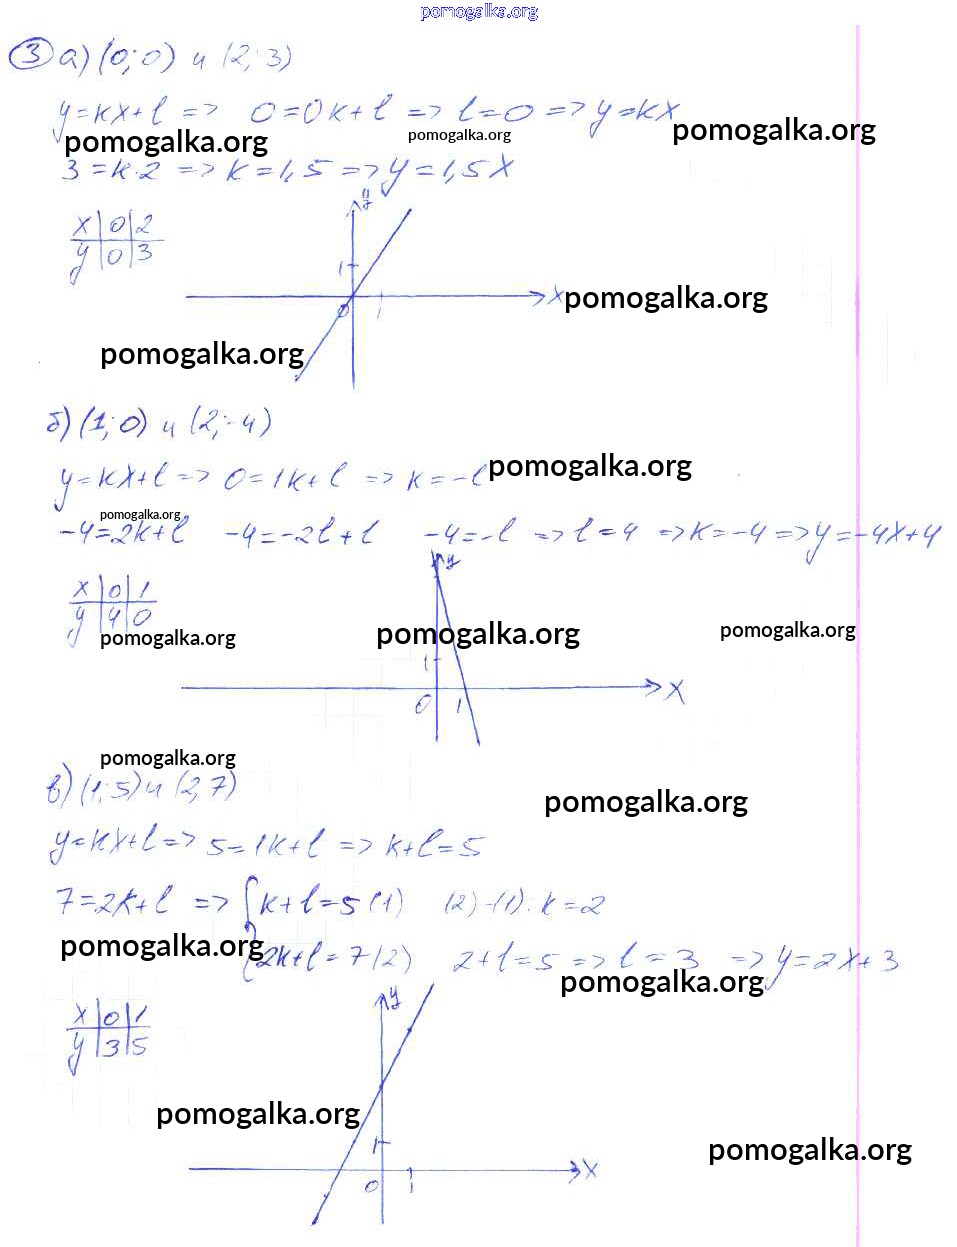 pomogalka.org
③ а) (0; 0) и (2; 3)
y=kx+l => 0=0k+l => l=0 => y=kx
pomogalka.org pomogalka.org pomogalka.org
3=k·2 => k=1,5 => y=1,5x
y
x 0 2
y 0 3
1
x
pomogalka.org
0 1
pomogalka.org
б) (1; 0) и (2; -4)
y=kx+l => 0=1k+l => k=-l
pomogalka.org
pomogalka.org
-4=2k+l -4=-2l+l -4=-l => l=4 => k=-4 => y=-4x+4
y
x 0 1
y 4 0
pomogalka.org pomogalka.org pomogalka.org
1
x
0 1
pomogalka.org
в) (1; 5) и (2; 7)
pomogalka.org
y=kx+l => 5=1k+l => k+l=5
7=2k+l => { k+l=5 (1) (2)-(1): k=2
pomogalka.org
2k+l=7 (2) 2+l=5 => l=3 => y=2x+3
pomogalka.org
y
x 0 1
y 3 5
pomogalka.org
1
pomogalka.org
x
0 1